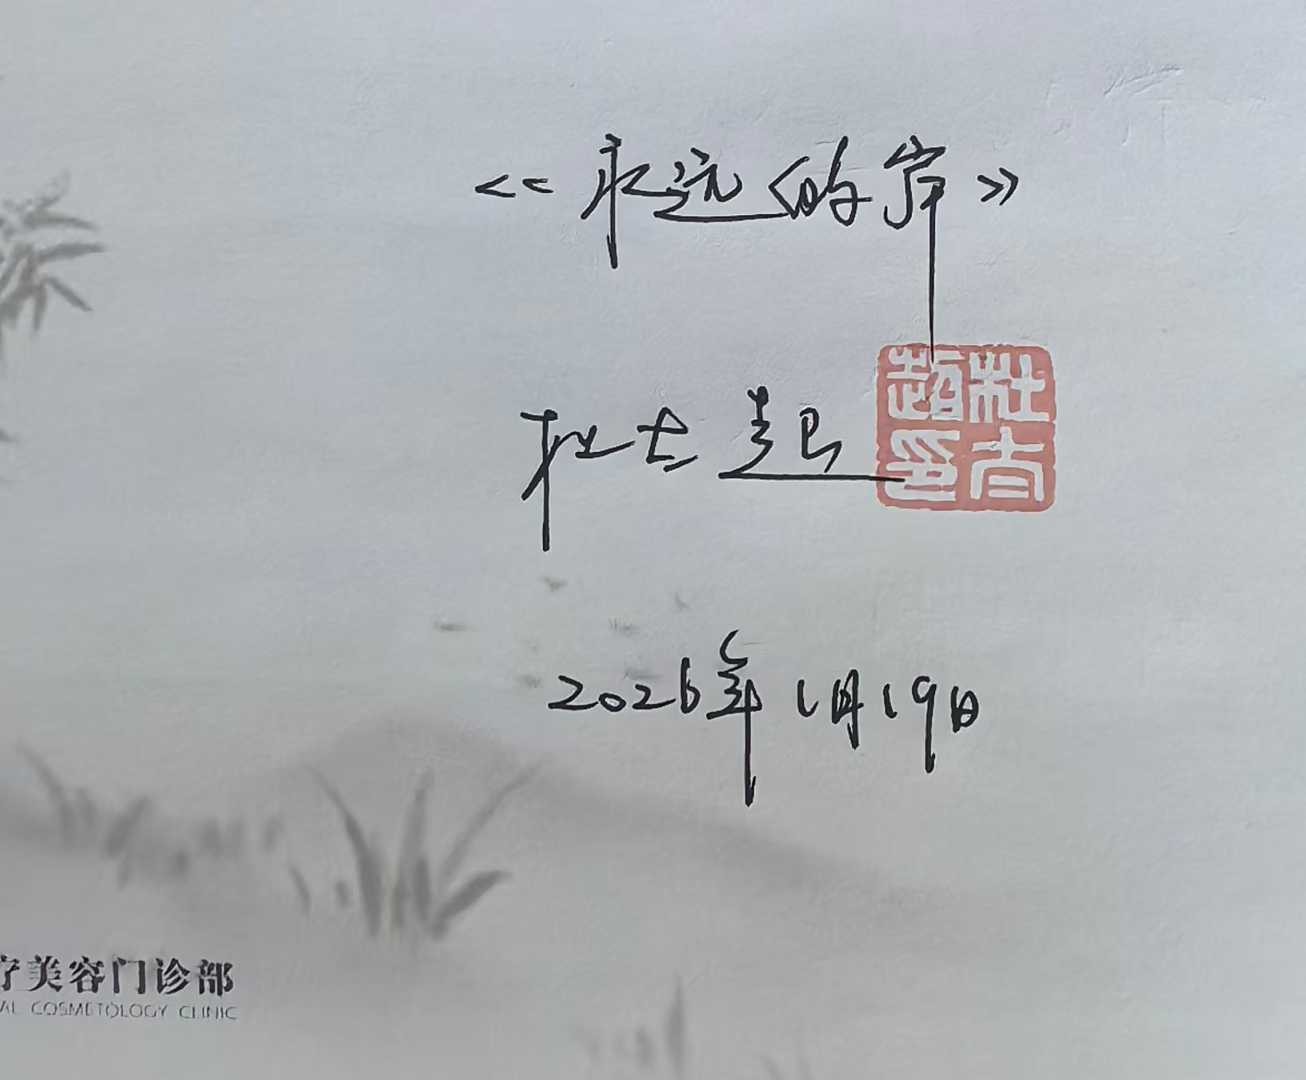 <<永远的岸>>
杜 起
2026年1月19日
疗美容门诊部
AL COSMETOLOGY CLINIC